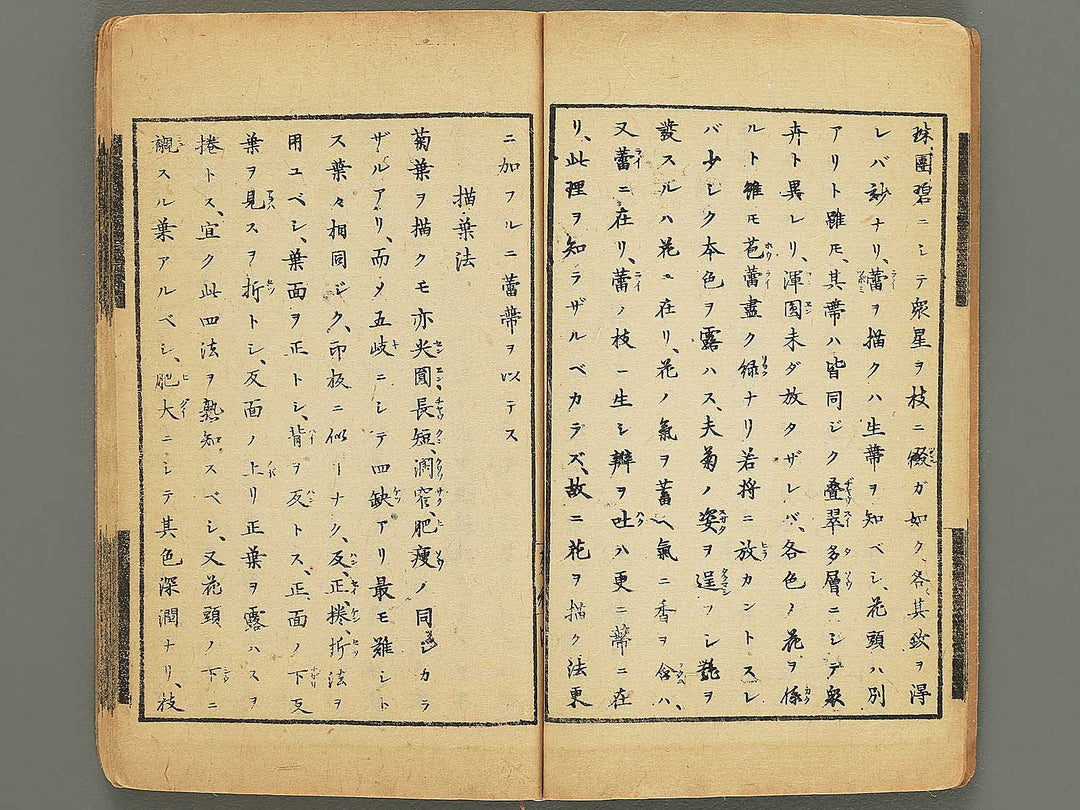 珠、團碧ニシテ衆星ヲ枝ニ綴ガ如ク各其致ヲ得
レバ妙ナリ、蕾ヲ描クハ生蔕ヲ知ベシ、花頭ハ別
アリト雖モ、其蔕ハ皆同ジク叠翠多層ニシテ衆
卉ト異レリ、渾圓未ダ放タザレバ、各色ノ花ヲ係
ルト雖モ苞蕾盡ク緑ナリ若将ニ放カントスレ
バ少シク本色ヲ露ハス、夫菊ノ姿ヲ逞フシ艶ヲ
發スルハ花ニ在リ、花ノ氣ヲ蓄ヘ氣ニ香ヲ含ハ、
又蕾ニ在リ、蕾ノ枝ニ生シ瓣ヲ吐ハ更ニ蔕ニ在
リ、此理ヲ知ラザルベカラズ、故ニ花ヲ描ク法更
ニ加フルニ蕾蔕ヲ以テス
描葉法
菊葉ヲ描クモ亦尖圓長短、濶窄、肥瘦ノ同シカラ
ザルアリ、而メ五岐ニシテ四缺アリ最モ難シト
ス葉々相同ジク、印板ニ似ーナク、反、正、捲、折法ヲ
用ユベシ、葉面ヲ正トシ、背ヲ反トス、正面ノ下反
葉ヲ見スヲ折トシ、反面ノ上リ正葉ヲ露ハスヲ
捲トス、宜ク此四法ヲ熟知スベシ、又花頭ノ下ニ
襯スル葉アルベシ、肥大ニシテ其色深潤ナリ、枝